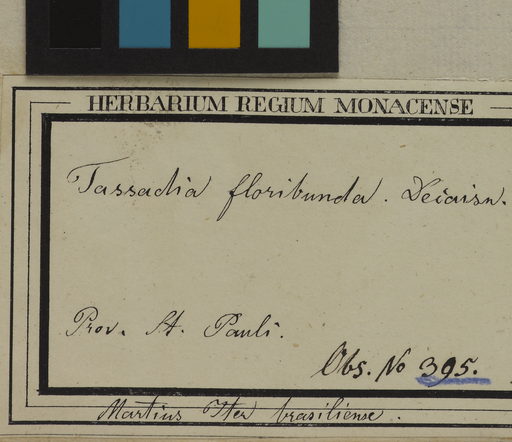 HERBARIUM REGIUM MONACENSE
Tassadia floribunda. Decaisn.
Prov. St. Pauli.
Obs. No 395.
Martius Iter brasiliense.